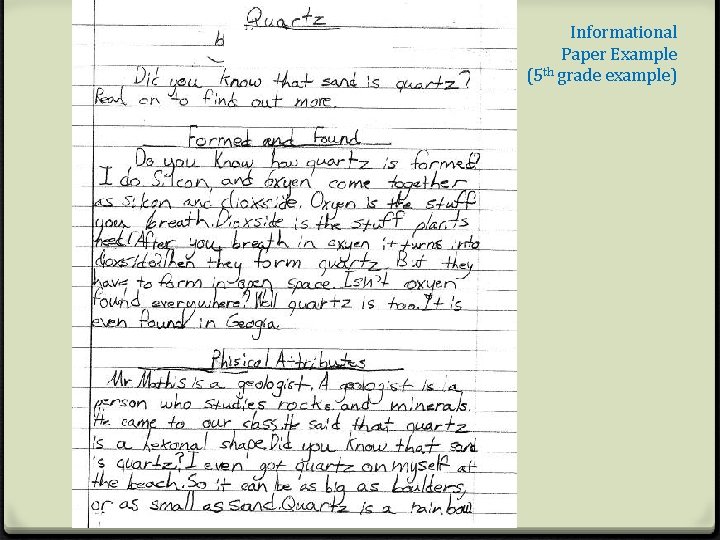 Quartz
b
Did you know that sand is quartz?
Read on to find out more.
Formed and Found
Do you know how quartz is formed?
I do. Silcon, and oxyen come together
as silcon and dioxside. Oxyen is the stuff
you breath. Dioxside is the stuff plants
need! After you breath in oxyen it turns into
dioxside. When they form quartz. But they
have to form in open space. Isn't oxyen
found everywhere? Well quartz is too. It is
even found in Geogia.
Phisical Attributes
Mr Mathis is a geologist. A geologist is a
person who studies rocks and minerals.
He came to our class. He said that quartz
is a hexonal shape. Did you know that sand
is quartz? I even got quartz on myself at
the beach. So it can be as big as boulders,
or as small as sand. Quartz is a rainbow
Informational
Paper Example
(5th grade example)